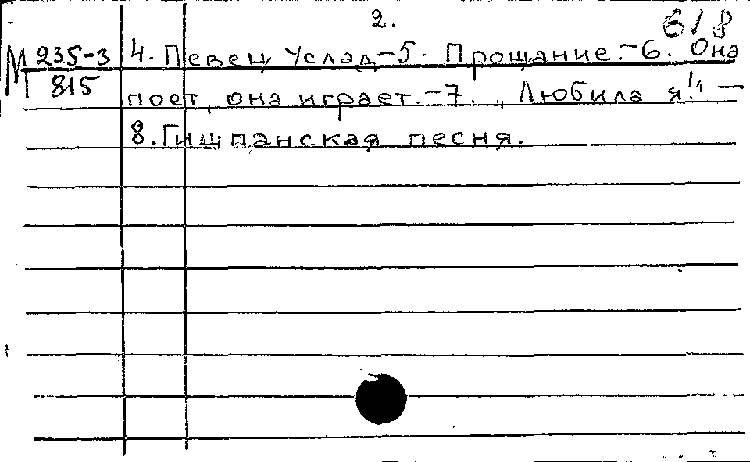 2.
б/в
М 235-3
815
4. Певец Услад.-5. Прощание.-6. Она
поет, она играет.-7. "Любила я!" -
8. Гишпанская песня.